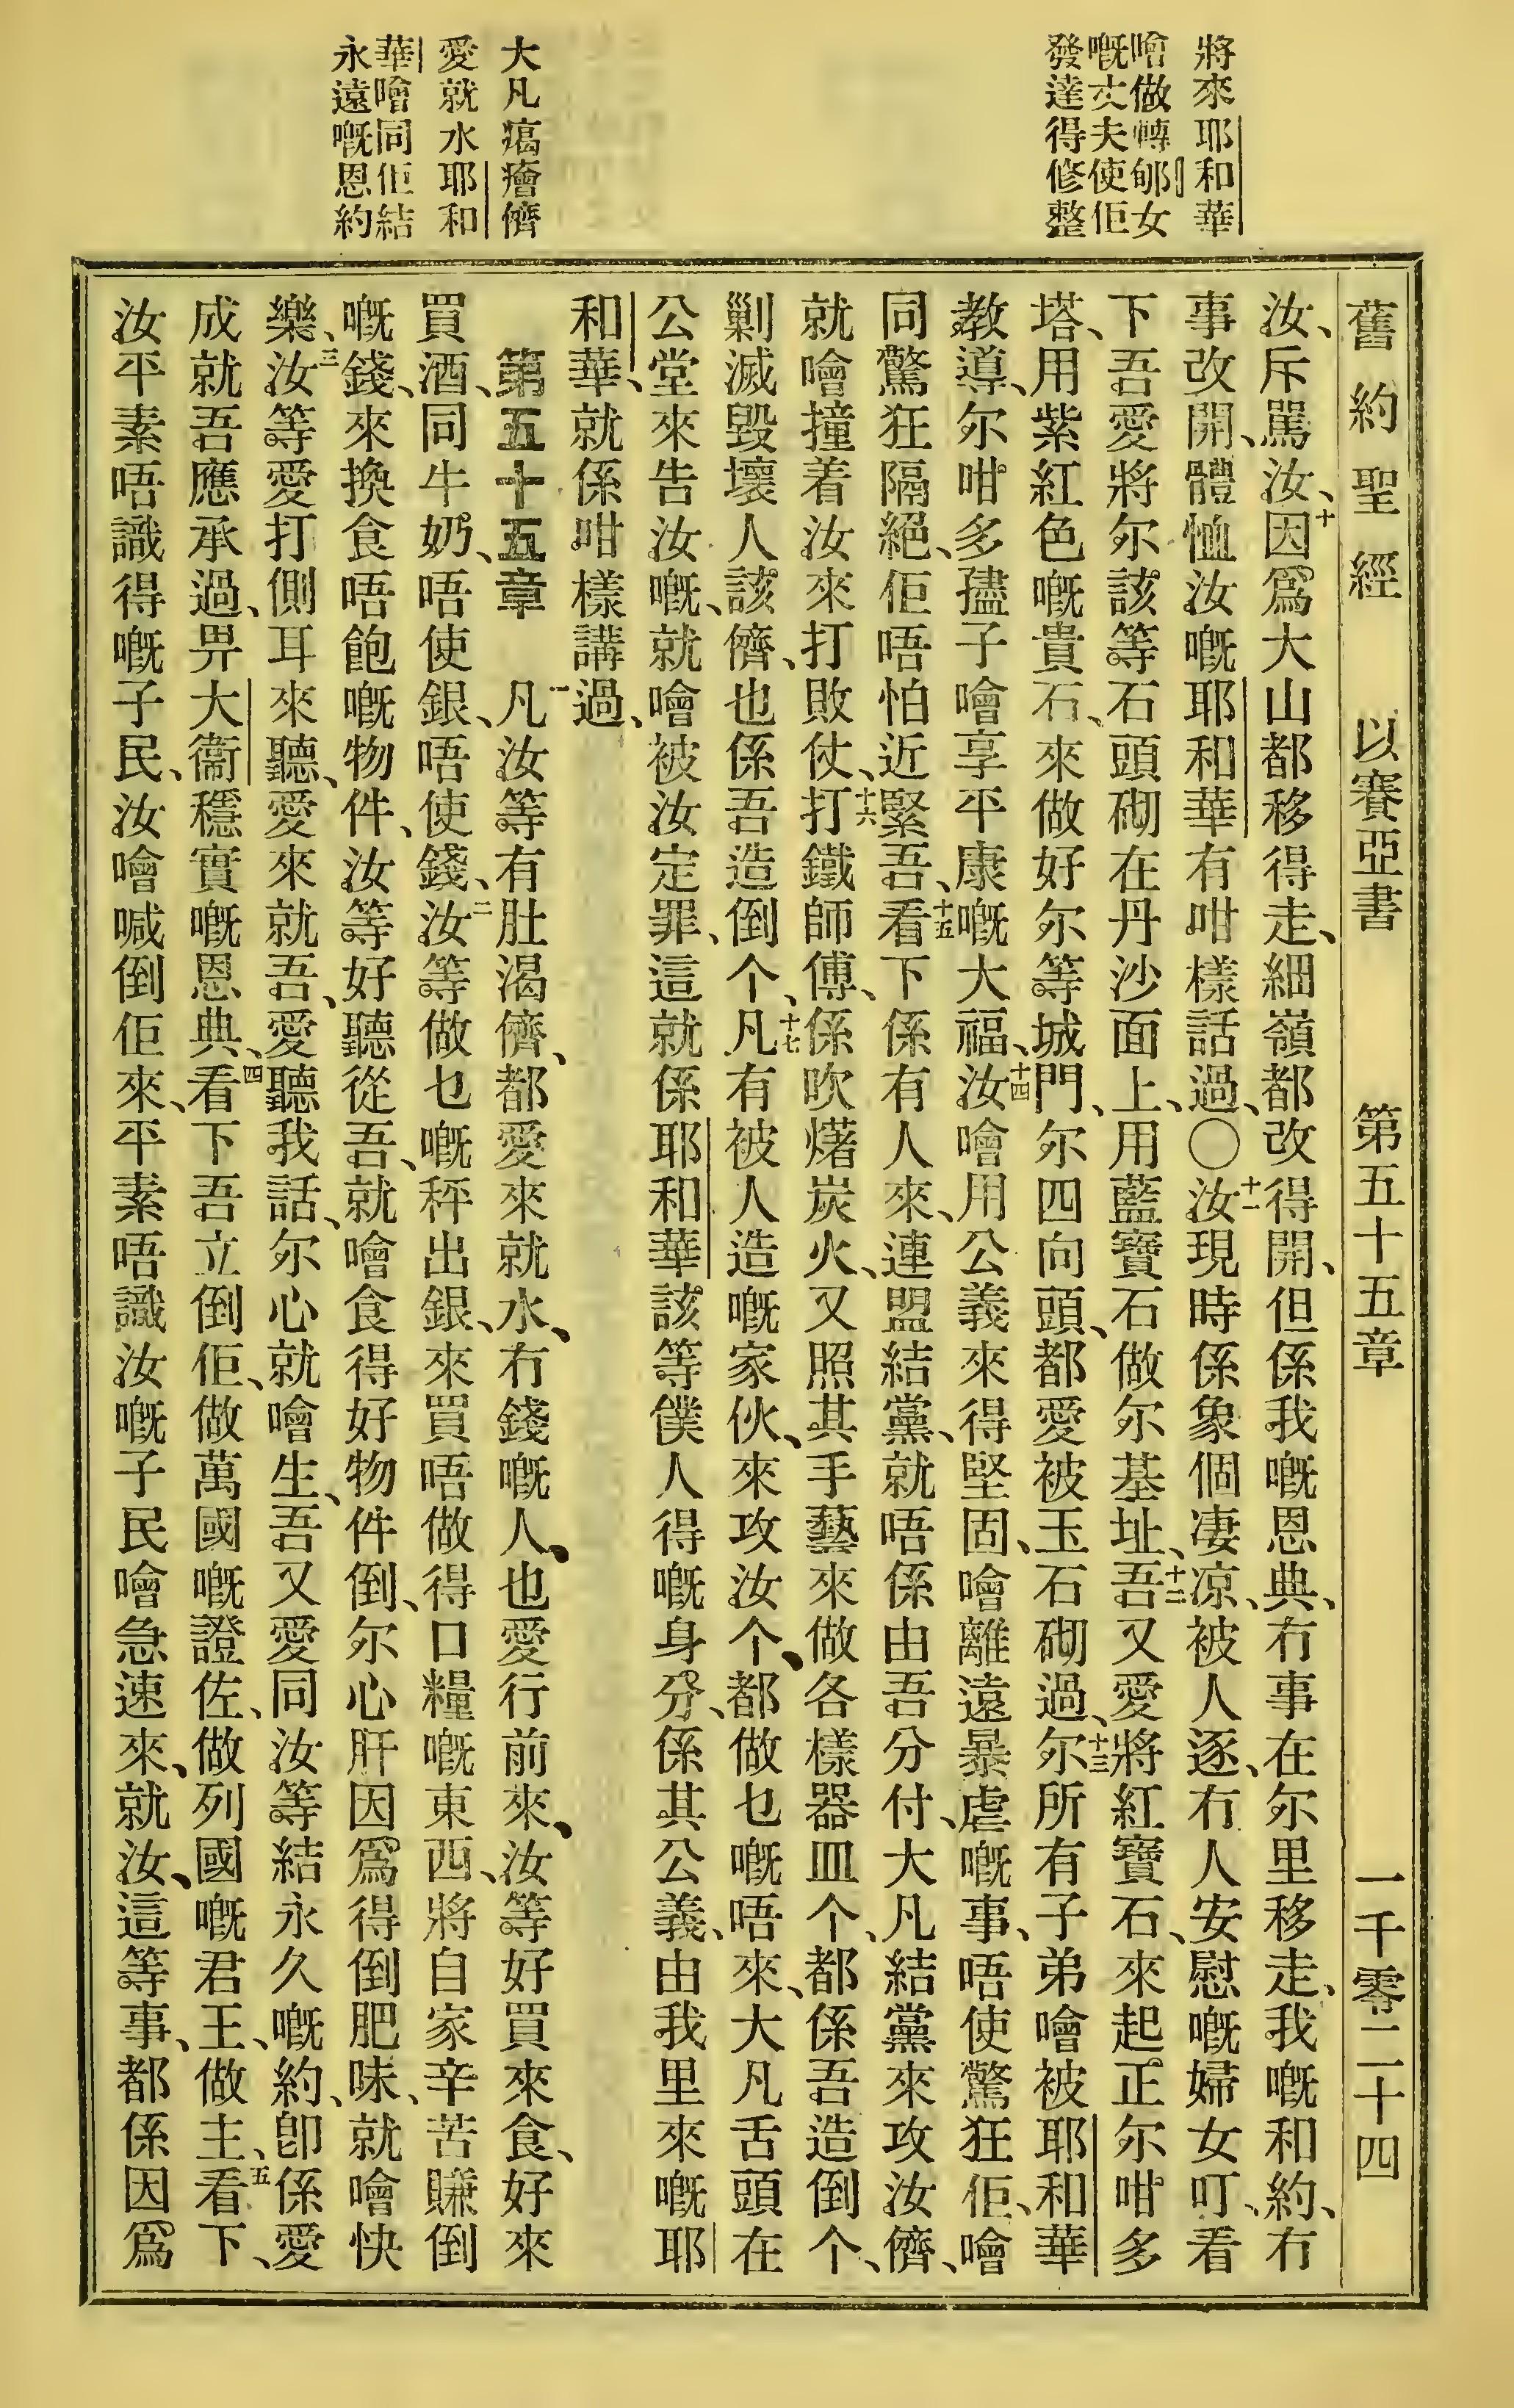 將來耶和華
噲做轉郇女
嘅丈夫使佢
發達得修整
大凡㾪癐儕
愛就水耶和
華噲同佢結
永遠嘅恩約
舊約聖經 以賽亞書 第五十五章 一千零二十四
汝、斥罵汝、十因爲大山都移得走、細嶺都改得開、但係我嘅恩典、冇事在尔里移走、我嘅和約、冇
事改開、體恤汝嘅耶和華有咁樣話過、〇十一汝現時係象個凄凉、被人逐、冇人安慰嘅婦女叮、看
下吾愛將尔該等石頭砌在丹沙面上、用藍寶石做尔基址、十二吾又愛將紅寶石、來起正尔咁多
塔、用紫紅色嘅貴石、來做好尔等城門、尔四向頭、都愛被玉石砌過、十三尔所有子弟噲被耶和華
教導、尔咁多孻子噲享平康嘅大福、十四汝噲用公義來得堅固、噲離遠暴虐嘅事、唔使驚狂佢、噲
同驚狂隔絕、佢唔怕近緊吾、十五看下係有人來、連盟結黨、就唔係由吾分付、大凡結黨來攻汝儕、
就噲撞着汝來打敗仗、十六打鐵師傅、係吹㷮炭火、又照其手藝來做各樣器皿个、都係吾造倒个、
剿滅毀壞人該儕、也係吾造倒个、十七凡有被人造嘅家伙、來攻汝个、都做乜嘅唔來、大凡舌頭在
公堂來告汝嘅、就噲被汝定罪、這就係耶和華該等僕人得嘅身分、係其公義、由我里來嘅耶
和華、就係咁樣講過、
第五十五章 一凡汝等有肚渴儕、都愛來就水、冇錢嘅人、也愛行前來、汝等好買來食、好來
買酒、同牛奶、唔使銀、唔使錢、二汝等做乜嘅秤出銀、來買唔做得口糧嘅東西、將自家辛苦賺倒
嘅錢、來換食唔飽嘅物件、汝等好聽從吾、就噲食得好物件倒、尔心肝因爲得倒肥味、就噲快
樂、三汝等愛打側耳來聽、愛來就吾、愛聽我話、尔心就噲生、吾又愛同汝等結永久嘅約、卽係愛
成就吾應承過、畀大衞穩實嘅恩典、四看下吾立倒佢、做萬國嘅證佐、做列國嘅君王、做主、五看下、
汝平素唔識得嘅子民、汝噲喊倒佢來、平素唔識汝嘅子民噲急速來、就汝、這等事、都係因爲